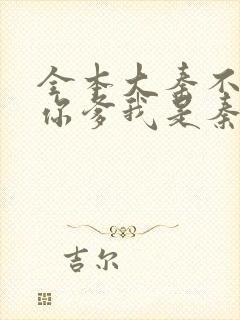 全本大秦不
你爹我是秦
吉尔